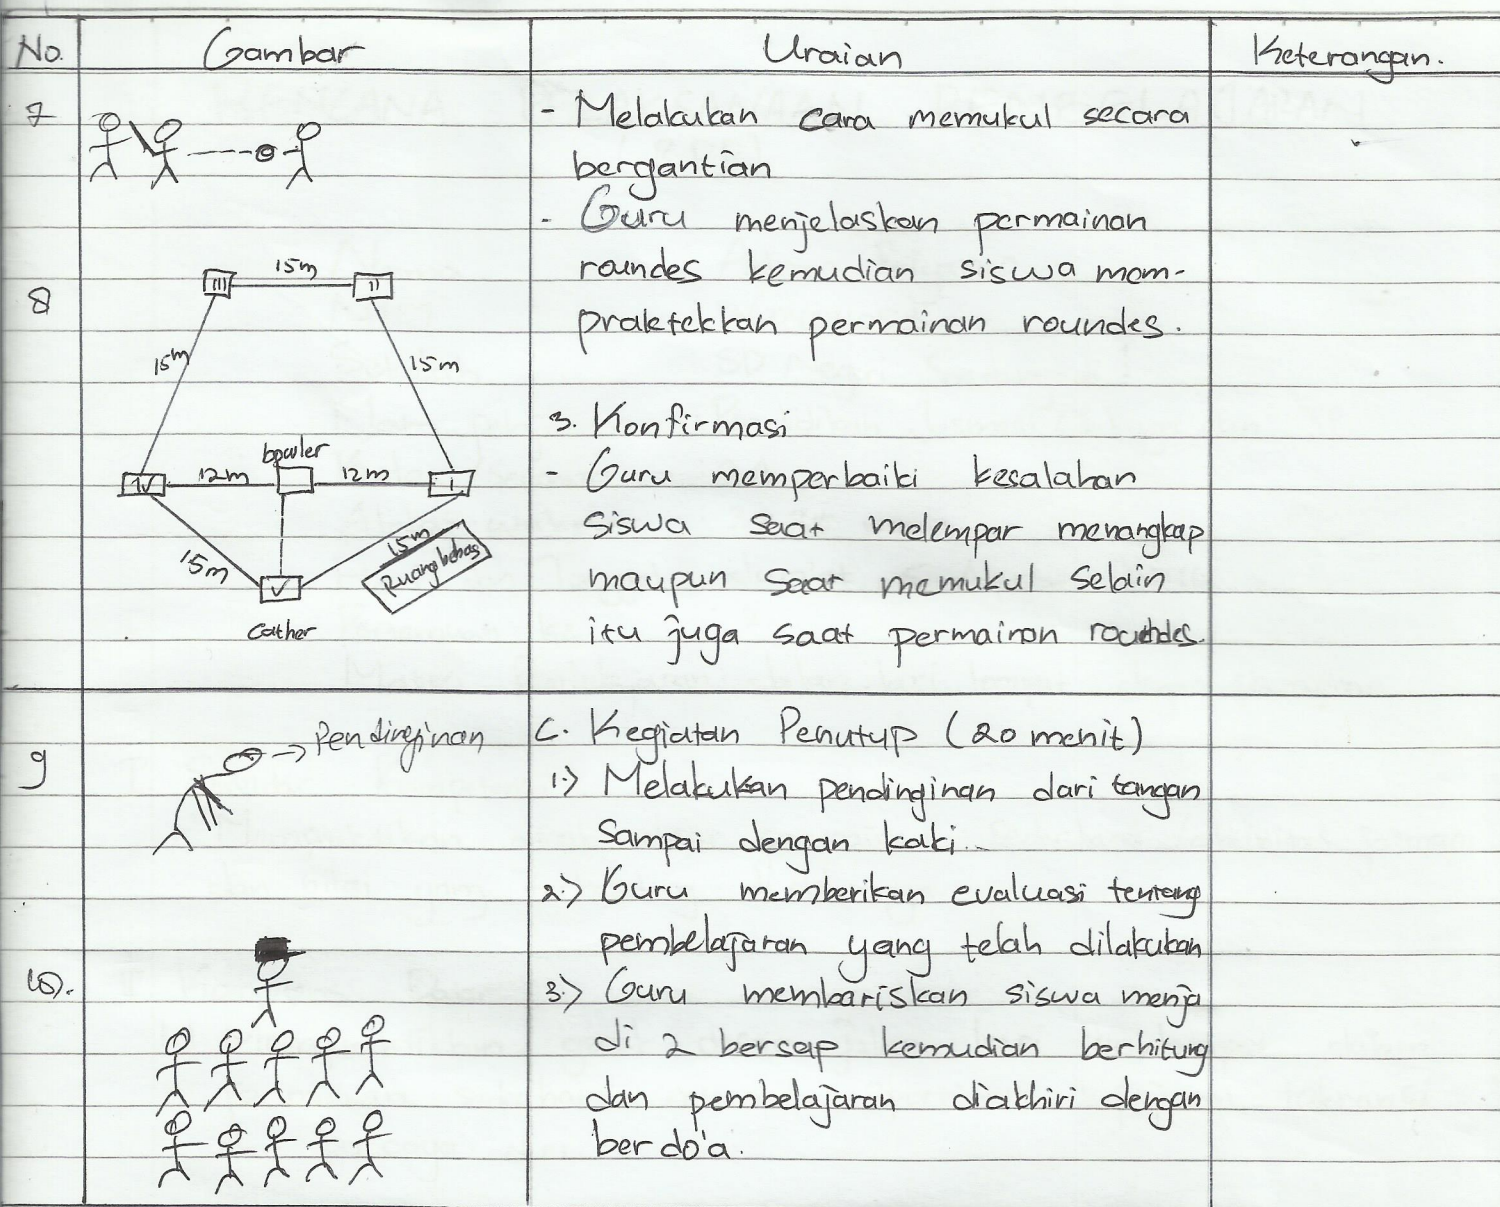 No. Gambar Uraian Keterangan.
7
- Melakukan cara memukul secara
bergantian
- Guru menjelaskan permainan
roundes kemudian siswa mem-
praktekkan permainan roundes.
8
15m
III
II
15m
15m
bowler
IV
12m
12m
I
15m
15m
Ruang bebas
V
Cather
3. Konfirmasi
- Guru memperbaiki kesalahan
siswa saat melempar menangkap
maupun saat memukul selain
itu juga saat permainan roundes.
9
Pendinginan
C. Kegiatan Penutup (20 menit)
1.) Melakukan pendinginan dari tangan
sampai dengan kaki..
2.) Guru memberikan evaluasi tentang
pembelajaran yang telah dilakukan
10).
3.) Guru membariskan siswa menja
di 2 bersap kemudian berhitung
dan pembelajaran diakhiri dengan
berdo'a.